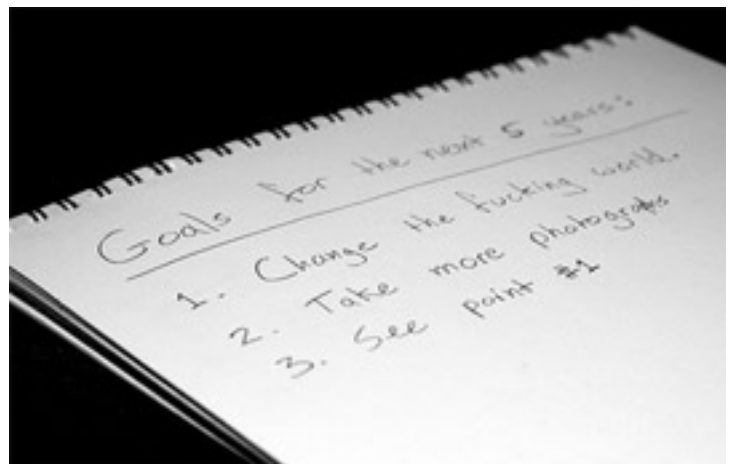 Goals for the next 5 years:
1. Change the fucking world.
2. Take more photographs
3. See point #1